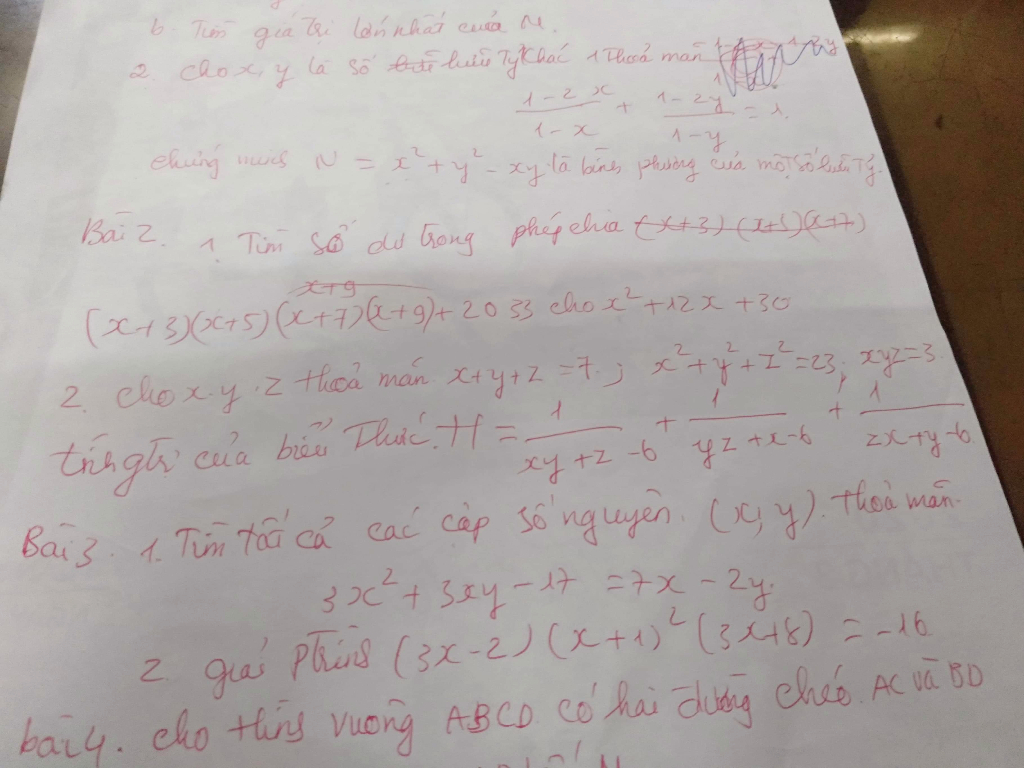 b. Tìm giá trị lớn nhất của N.
2. cho x, y là số hữu tỷ khác 1 thoả mãn
\frac{1-2x}{1-x} + \frac{1-2y}{1-y} = 1.
chứng minh N = x² + y² - xy là bình phương của một số hữu tỷ.
Bài 2. 1. Tìm số dư trong phép chia (x+3)(x+5)(x+7)
x+9
(x+3)(x+5)(x+7)(x+9)+2033 cho x²+12x+30
2. cho x.y.z thoả mãn x+y+z=7; x²+y²+z²=23; xyz=3
tính gtrị của biểu thức. H = \frac{1}{xy+z-6} + \frac{1}{yz+x-6} + \frac{1}{zx+y-6}
Bài 3. 1. Tìm tất cả các cặp số nguyên. (x, y). thoả mãn.
3x²+3xy-17=7x-2y
2. giải ptrình (3x-2)(x+1)²(3x+8)=-16
bài 4. cho hình vuông ABCD có hai đường chéo AC và BD